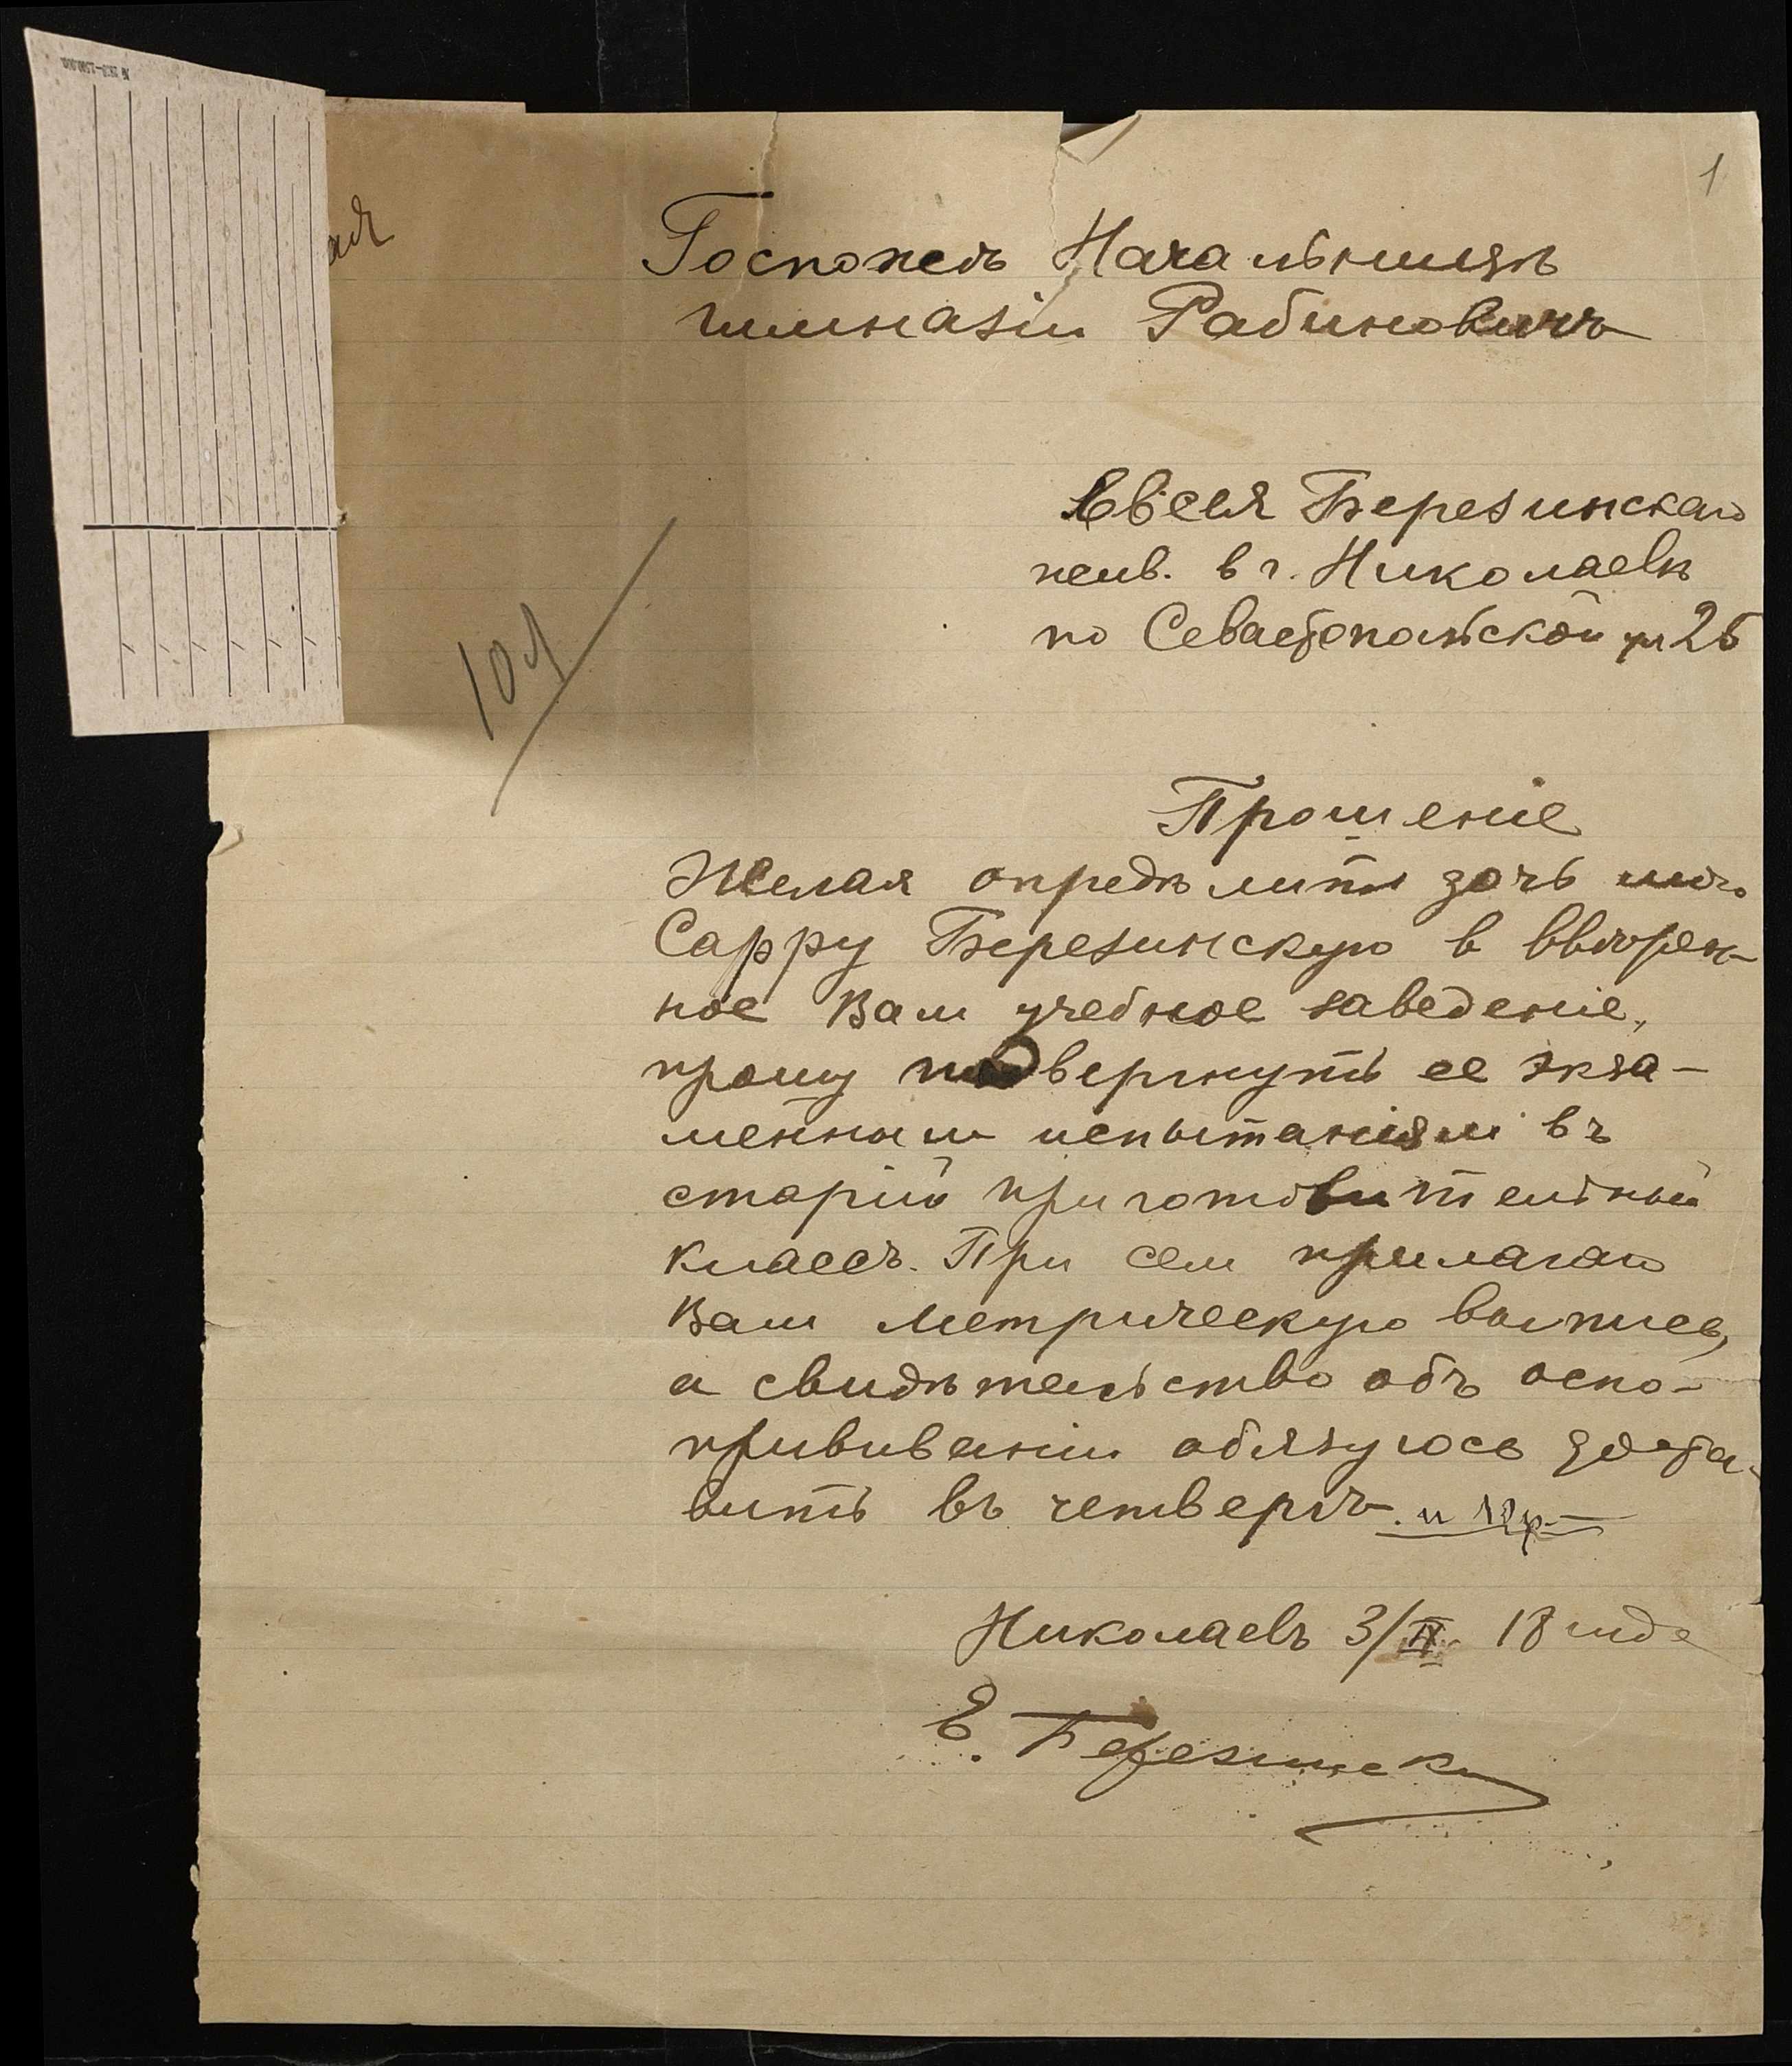 1
Госпожѣ Начальницѣ
гимназіи Рабиновичъ
Евсея Березинскаго
жив. в г. Николаевѣ
по Севастопольской ул 25
Прошеніе
Желая опредѣлить дочь мою
Сарру Березинскую в ввѣрен-
ное Вам учебное заведеніе,
прошу подвергнуть ее экза-
менным испытаніям въ
старій приготовительный
классъ. При сем прилагаю
Вам метрическую выпись,
а свидѣтельство объ оспо-
прививаніи обязуюсь доста-
вить въ четвергъ. и
Николаевъ 3/ 18 года
Е. Березинск